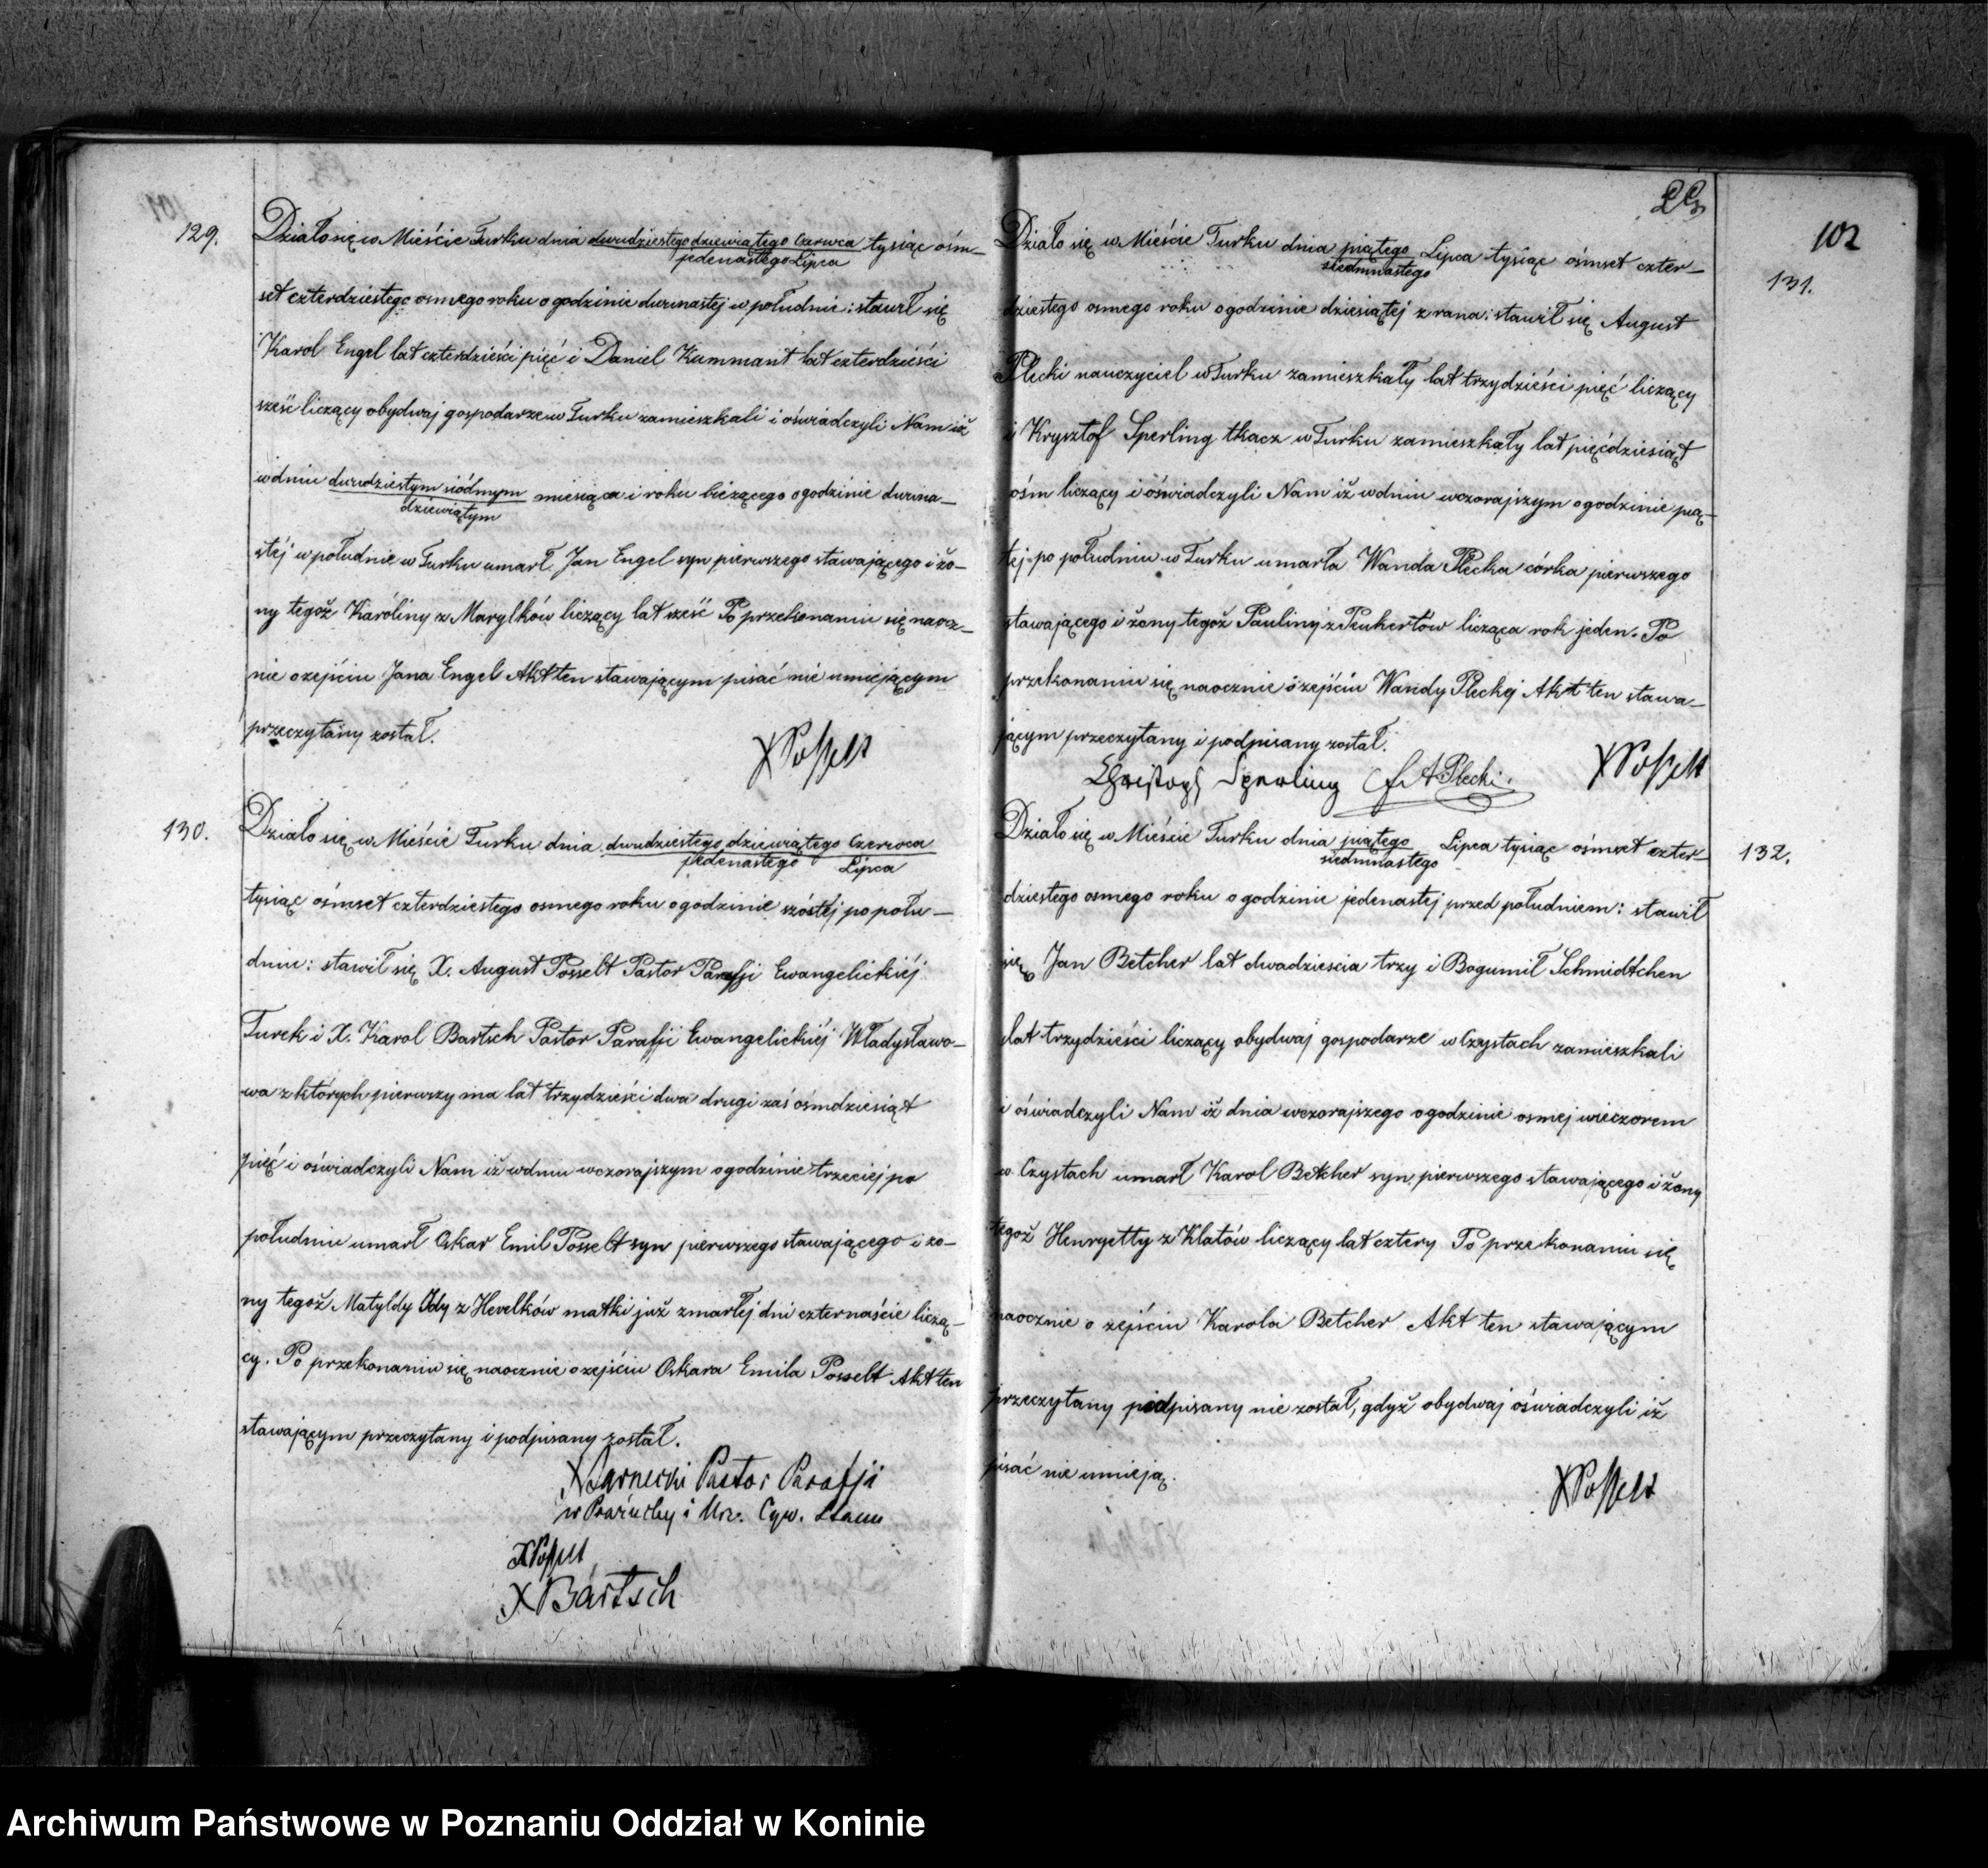 129.
Działo się w Mieście Turku dnia dwudziestego dziewiątego Czerwca tysiąc ośm-
jedenastego Lipca
set czterdziestego osmego roku o godzinie dwunastej w południe: stawił się
Karol Engel lat czterdzieści pięć i Daniel Kummant lat czterdzieści
sześć liczący obydwaj gospodarze w Turku zamieszkali i oświadczyli Nam iż
w dniu dwudziestym siódmym miesiąca i roku bieżącego o godzinie dwuna-
dziewiątym
stéj w południe w Turku umarł Jan Engel syn pierwszego stawającego i żo-
ny tegoż Karóliny z Marylków liczący lat sześć Po przekonaniu się naocz-
nie o zejściu Jana Engel Akt ten stawającym pisać nie umiejącym
przeczytany został.
X Posselt
130.
Działo się w Mieście Turku dnia dwudziestego dziewiątego Czerwca
jedenastego Lipca
tysiąc ośmset czterdziestego osmego roku o godzinie szóstéj po połu-
dniu: stawił się X. August Posselt Pastor Parafji Ewangelickiéj
Turek i X. Karol Bartsch Pastor Parafji Ewangelickiéj Władysławo-
wa z których pierwszy ma lat trzydzieści dwa drugi zaś ośmdziesiąt
pięć i oświadczyli Nam iż w dniu wczorajszym o godzinie trzeciej po
południu umarł Oskar Emil Posselt syn pierwszego stawającego i żo-
ny tegoż Matyldy Idy z Hevelków matki już zmarłej dni czternaście liczą-
cy. Po przekonaniu się naocznie o zejściu Oskara Emila Posselt Akt ten
stawającym przeczytany i podpisany został.
Pastor Parafji
i Urz. Cyw. Stanu
X Posselt
X Bartsch
102
131.
Działo się w Mieście Turku dnia piątego Lipca tysiąc ośmset czter-
siedmnastego
dziestego osmego roku o godzinie dziesiątéj z rana: stawił się August
Plecki nauczyciel w Turku zamieszkały lat trzydzieści pięć liczący
i Krysztof Sperling tkacz w Turku zamieszkały lat pięćdziesiąt
ośm liczący i oświadczyli Nam iż w dniu wczorajszym o godzinie pią-
tej po południu w Turku umarła Wanda Plecka córka pierwszego
stawającego i żony tegoż Pauliny z Peukertów licząca rok jeden. Po
przekonaniu się naocznie o zejściu Wandy Pleckej Akt ten stawa-
jącym przeczytany i podpisany został.
Christoph Sperling A Plecki X Posselt
132.
Działo się w Mieście Turku dnia piątego Lipca tysiąc ośmset czter-
siedmnastego
dziestego osmego roku o godzinie jedenastej przed południem: stawił
się Jan Betcher lat dwadzieścia trzy i Bogumił Schmidtchen
lat trzydzieści liczący obydwaj gospodarze w Czystach zamieszkali
i oświadczyli Nam iż dnia wczorajszego o godzinie osmej wieczorem
w Czystach umarł Karol Betcher syn pierwszego stawającego i żony
tegoż Henryetty z Klatów liczący lat cztery Po przekonaniu się
naocznie o zejściu Karola Betcher Akt ten stawającym
przeczytany podpisany nie został, gdyż obydwaj oświadczyli iż
pisać nie umieją.
X Posselt
Archiwum Państwowe w Poznaniu Oddział w Koninie